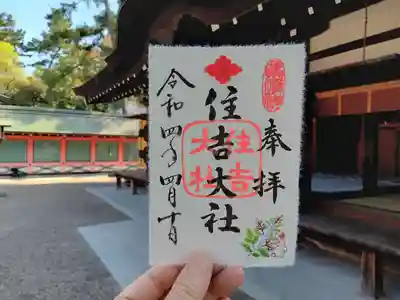 奉拝
住吉大社
住吉大社
令和四年四月十日